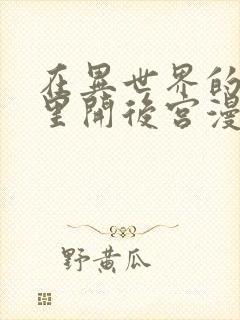 在異世界的
望開後宮漫
野黄瓜